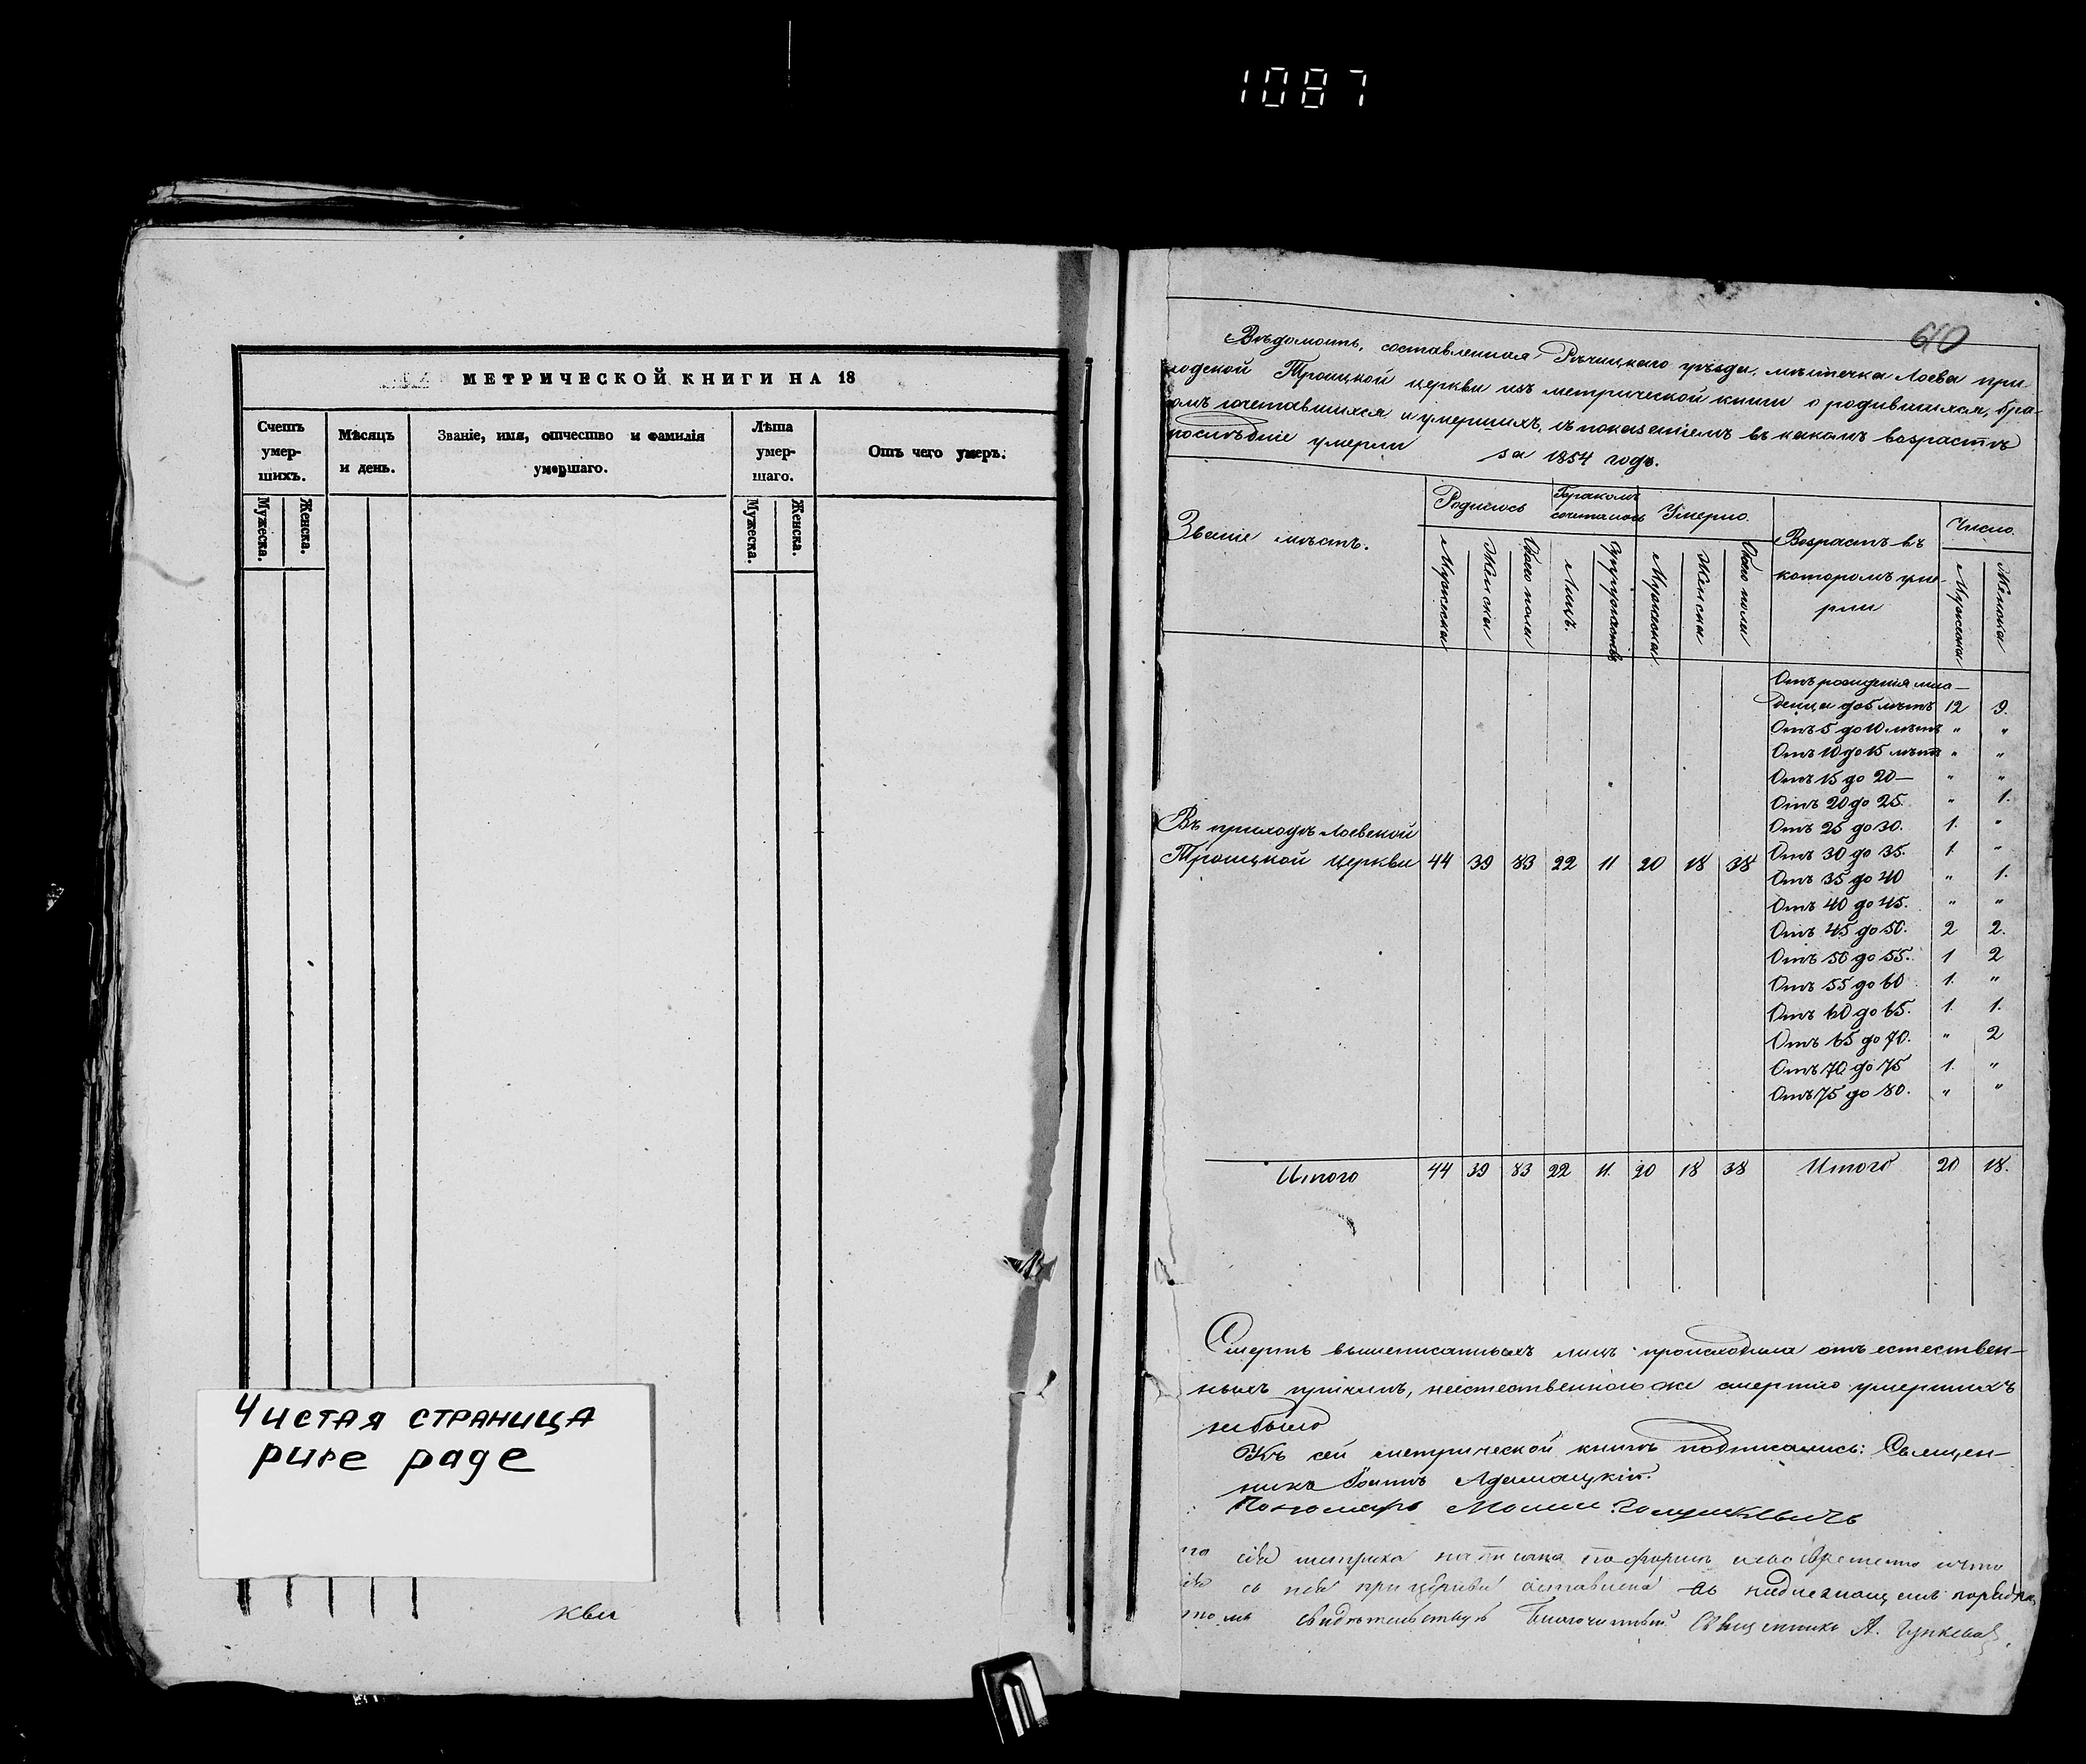 1087
МЕТРИЧЕСКОЙ КНИГИ НА 18
Счетъ умер-шихъ.
Мѣсяцъ и день.
Званіе, имя, отчество и фамилія умершаго.
Лѣта умер-шаго.
Отъ чего умеръ.
Мужеска.
Женска.
Мужеска.
Женска.
Чистая страница
pure page
кви
610
Вѣдомость, составленная Рѣчицкаго уѣзда, мѣстечка Лоева при-
ходской Троицкой церкви изъ метрической книги о родившихся, бра-
комъ сочетавшихся и умершихъ, съ показаніемъ въ какомъ возрастѣ
послѣдніе умерли за 1854 годъ.
Званіе мѣстъ.
Родилось
Бракомъ сочеталось
Умерло.
Возрастъ въ которомъ уме-рли
Число.
Мужеска
Женска
Обоего пола
Лицъ.
Супружествъ
Мужеска
Женска
Обоего пола
Мужеска
Женска
Отъ рожденія мла-
денца до 5 лѣтъ 12 9.
Отъ 5 до 10 лѣтъ " "
Отъ 10 до 15 лѣтъ " "
Отъ 15 до 20 — " "
Отъ 20 до 25. " 1.
Отъ 25 до 30. 1. "
Въ приходѣ Лоевской
Троицкой церкви 44 39 83 22 11 20 18 38
Отъ 30 до 35. 1 "
Отъ 35 до 40 " 1.
Отъ 40 до 45. " "
Отъ 45 до 50. 2 2.
Отъ 50 до 55. 1 2
Отъ 55 до 60 1. "
Отъ 60 до 65. 1. 1.
Отъ 65 до 70. " 2
Отъ 70 до 75 1. "
Отъ 75 до 80. " "
Итого 44 39 83 22 11. 20 18 38 Итого 20 18.
Смерть вышеписанныхъ лицъ происходила отъ естествен-
ныхъ причинъ, неестественною же смертію умершихъ
небыло
Къ сей метрической книгѣ подписались: Священ-
никъ
Пономарь
метрика написана по формѣ
при церкви оставлена въ надлежащемъ порядкѣ
томъ свидѣтельствую Благочинный Священникъ А.